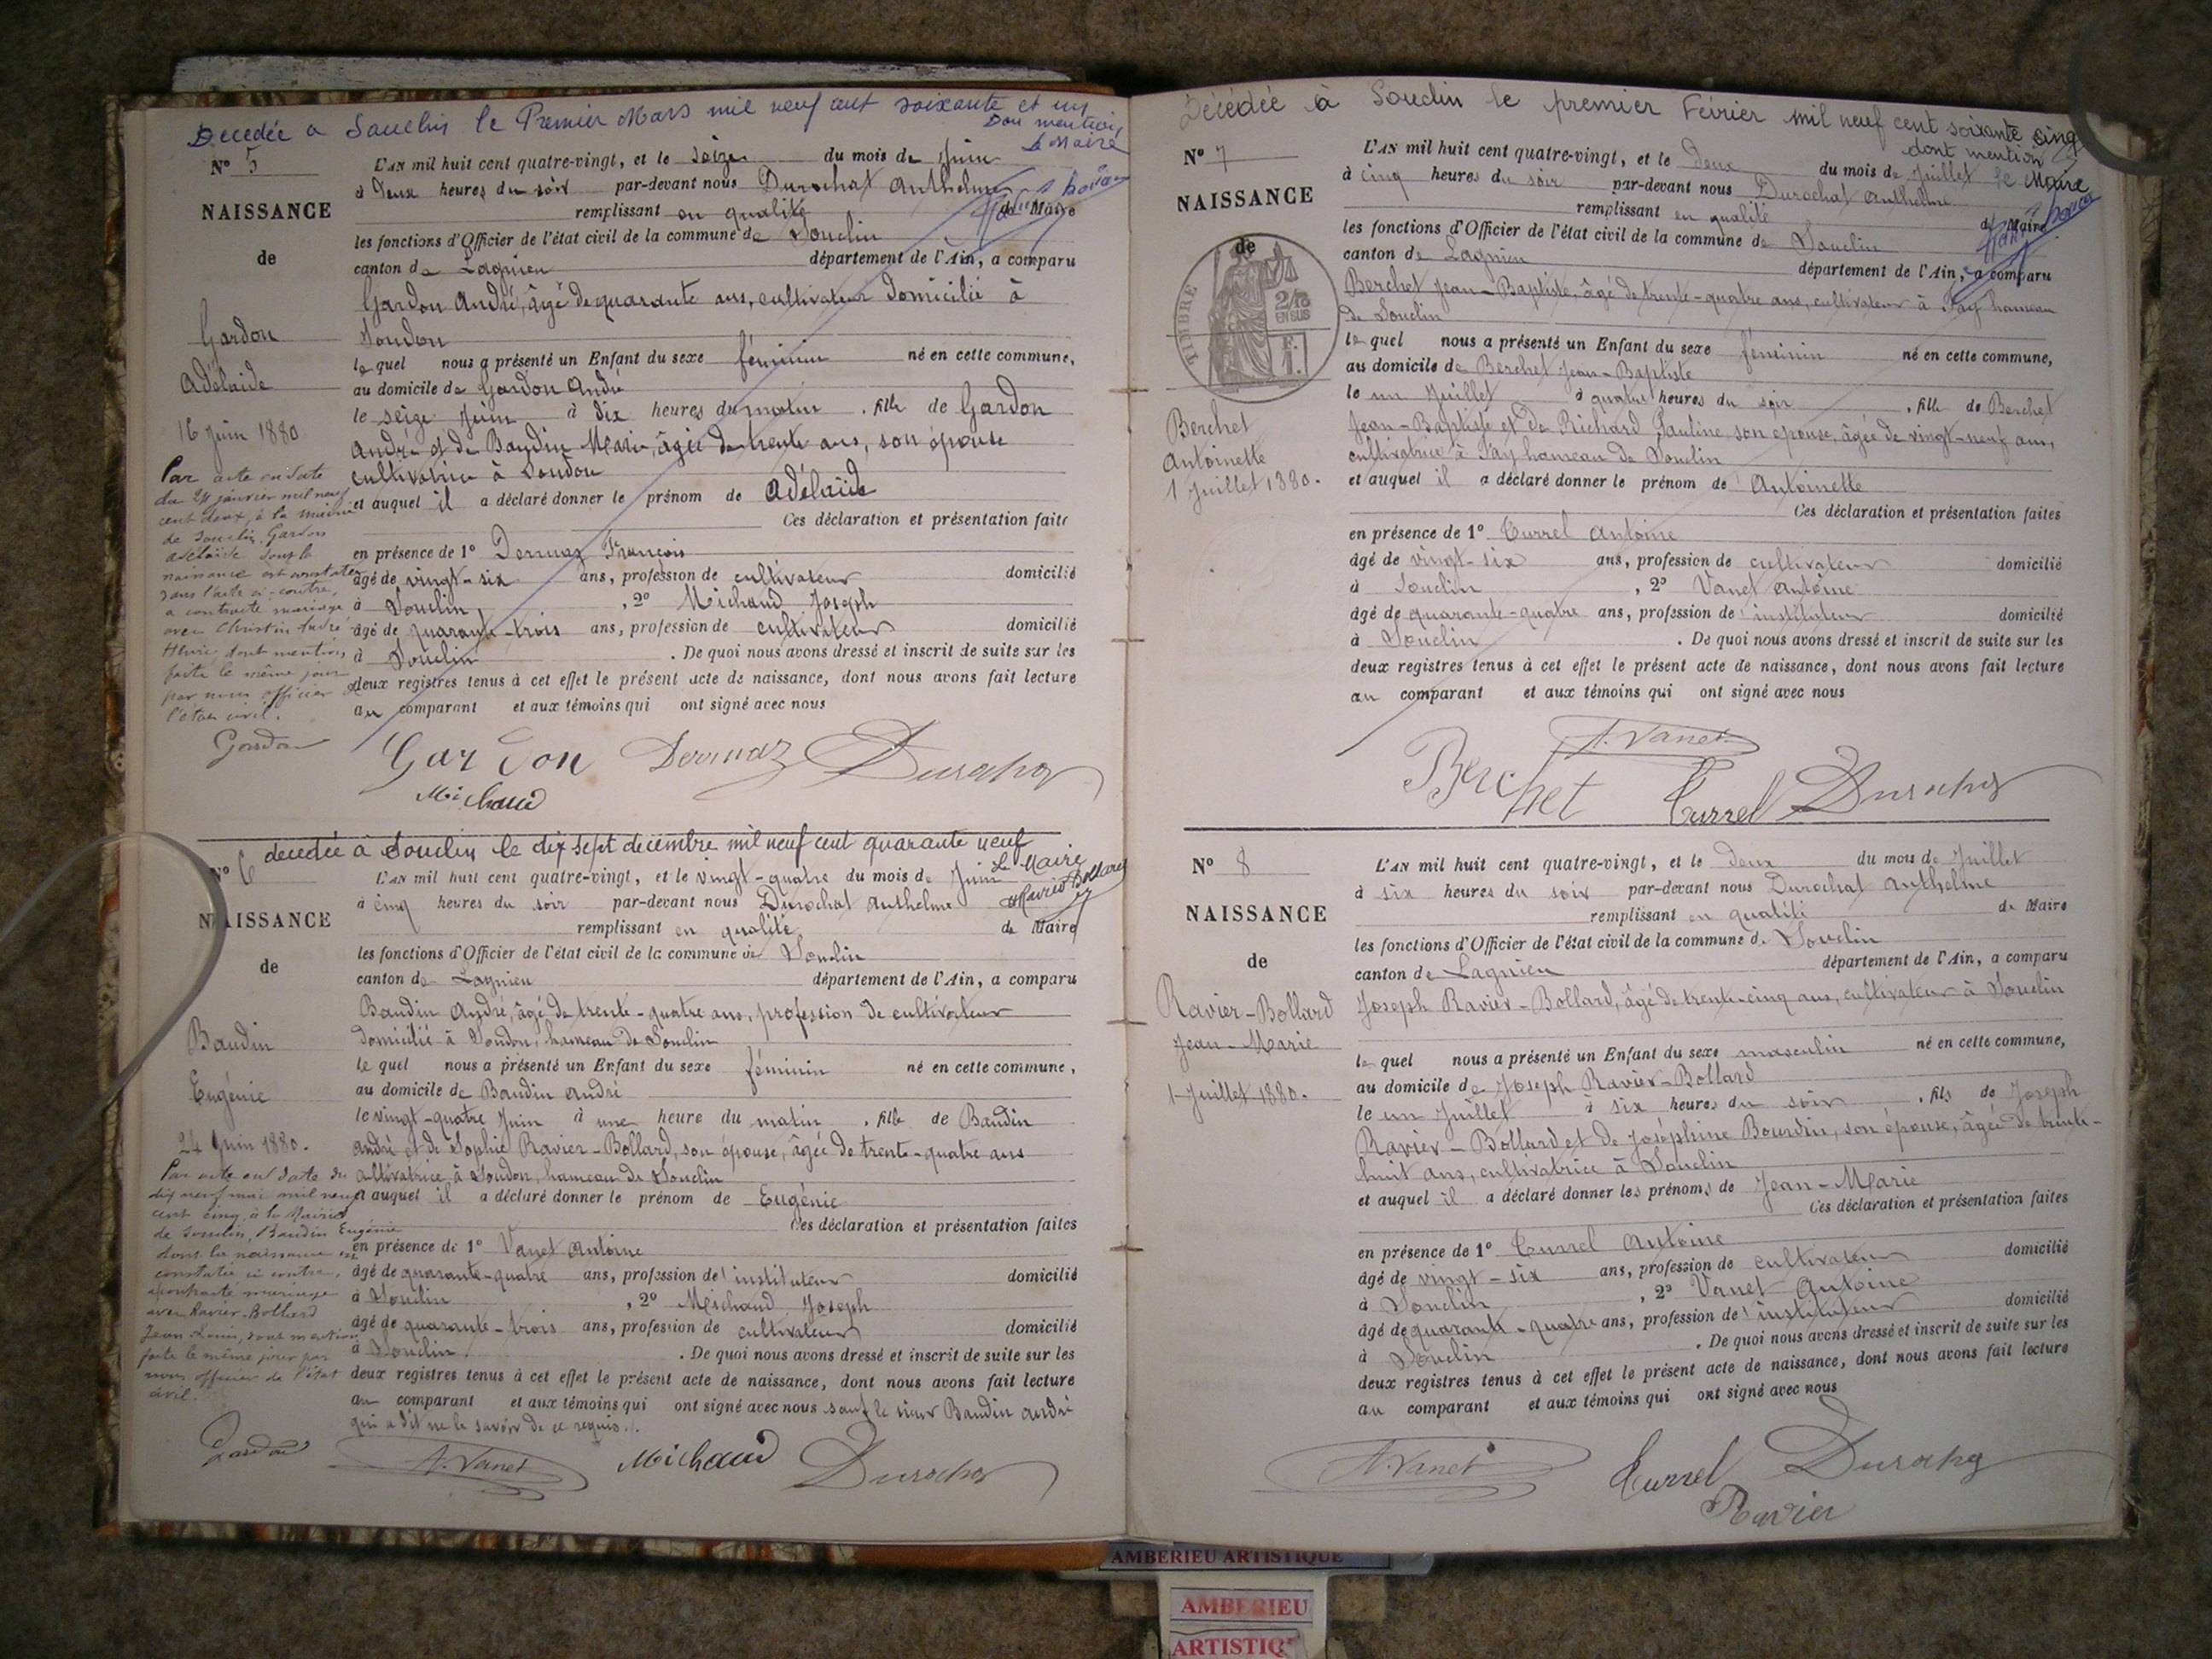 Décédée a Souclin le Premier Mars mil neuf cent soixante et un
Dont mention
Le Maire
N° 5
NAISSANCE
de
Gardon
Adélaide
16 Juin 1880
Par acte en date
du 24 janvier mil neuf
cent deux, à la mairie
de Souclin, Gardon
Adélaïde dont la
naissance est constatée
dans l'acte ci-contre,
a contracté mariage
avec Christin André
dont mention
faite le même jour
par nous officier de
l'état civil.
Gardon
L'AN mil huit cent quatre-vingt, et le seize du mois de Juin
à deux heures du soir par-devant nous Durochat Anthelme
remplissant en qualité de Maire
les fonctions d'Officier de l'état civil de la commune de Souclin
canton de Lagnieu département de l'Ain, a comparu
Gardon André, âgé de quarante ans, cultivateur domicilié à
Soudon
le quel nous a présenté un Enfant du sexe féminin né en cette commune,
au domicile de Gardon André
le seize Juin à dix heures du matin, fille de Gardon
André et de Baudin Marie, âgée de trente ans, son épouse
cultivatrice à Soudon
et auquel il a déclaré donner le prénom de Adélaïde
Ces déclaration et présentation faites
en présence de 1° Dernaz François
âgé de vingt-six ans, profession de cultivateur domicilié
à Souclin, 2° Michaud Joseph
âgé de quarante-trois ans, profession de cultivateur domicilié
à Souclin. De quoi nous avons dressé et inscrit de suite sur les
deux registres tenus à cet effet le présent acte de naissance, dont nous avons fait lecture
au comparant et aux témoins qui ont signé avec nous
Gardon Dernaz Durochat
Michaud
decedée à Souclin le dix sept decembre mil neuf cent quarante neuf
Le Maire
Ravier Bollard
N° 6
NAISSANCE
de
Baudin
Eugénie
24 Juin 1880.
Par acte en date du
dix neuf mai mil neuf
cent cinq, à la Mairie
de Souclin, Baudin Eugénie
dont la naissance est
constatée ci contre,
a contracté mariage
avec Ravier-Bollard
Jean Louis, dont mention
faite le même jour par
nous officier de l'état
civil.
Gardon
L'AN mil huit cent quatre-vingt, et le vingt-quatre du mois de Juin
à cinq heures du soir par-devant nous Durochat Anthelme
remplissant en qualité de Maire
les fonctions d'Officier de l'état civil de la commune de Souclin
canton de Lagnieu département de l'Ain, a comparu
Baudin André, âgé de trente-quatre ans, profession de cultivateur
domicilié à Soudon, hameau de Souclin
le quel nous a présenté un Enfant du sexe féminin né en cette commune,
au domicile de Baudin André
le vingt-quatre Juin à une heure du matin, fille de Baudin
André et de Sophie Ravier-Bollard, son épouse, âgée de trente-quatre ans
cultivatrice à Soudon, hameau de Souclin
et auquel il a déclaré donner le prénom de Eugénie
Ces déclaration et présentation faites
en présence de 1° Vanet Antoine
âgé de quarante-quatre ans, profession de instituteur domicilié
à Souclin, 2° Michaud Joseph
âgé de quarante-trois ans, profession de cultivateur domicilié
à Souclin. De quoi nous avons dressé et inscrit de suite sur les
deux registres tenus à cet effet le présent acte de naissance, dont nous avons fait lecture
au comparant et aux témoins qui ont signé avec nous sauf le sieur Baudin André
qui a dit ne le savoir de ce requis.
A. Vanet Michaud Durochat
Décédée à Souclin le premier Février mil neuf cent soixante cinq
dont mention
le Maire
N° 7
NAISSANCE
de
TIMBRE
2/10
EN SUS
F.
1.
Berchet
Antoinette
1 Juillet 1880.
L'AN mil huit cent quatre-vingt, et le deux du mois de Juillet
à cinq heures du soir par-devant nous Durochat Anthelme
remplissant en qualité de Maire
les fonctions d'Officier de l'état civil de la commune de Souclin
canton de Lagnieu département de l'Ain, a comparu
Berchet Jean-Baptiste, âgé de trente-quatre ans, cultivateur à Fay hameau
de Souclin
le quel nous a présenté un Enfant du sexe féminin né en cette commune,
au domicile de Berchet Jean-Baptiste
le un Juillet à quatre heures du soir, fille de Berchet
Jean-Baptiste et de Richard Pauline, son épouse, âgée de vingt-neuf ans,
cultivatrice à Fay hameau de Souclin
et auquel il a déclaré donner le prénom de Antoinette
Ces déclaration et présentation faites
en présence de 1° Currel Antoine
âgé de vingt-six ans, profession de cultivateur domicilié
à Souclin, 2° Vanet Antoine
âgé de quarante-quatre ans, profession de instituteur domicilié
à Souclin. De quoi nous avons dressé et inscrit de suite sur les
deux registres tenus à cet effet le présent acte de naissance, dont nous avons fait lecture
au comparant et aux témoins qui ont signé avec nous
A. Vanet
Berchet Currel Durochat
N° 8
NAISSANCE
de
Ravier-Bollard
Jean-Marie
1 Juillet 1880.
L'AN mil huit cent quatre-vingt, et le deux du mois de Juillet
à six heures du soir par-devant nous Durochat Anthelme
remplissant en qualité de Maire
les fonctions d'Officier de l'état civil de la commune de Souclin
canton de Lagnieu département de l'Ain, a comparu
Joseph Ravier-Bollard, âgé de trente-cinq ans, cultivateur à Souclin
le quel nous a présenté un Enfant du sexe masculin né en cette commune,
au domicile de Joseph Ravier-Bollard
le un Juillet à six heures du soir, fils de Joseph
Ravier-Bollard et de Joséphine Bourdin, son épouse, âgée de trente-
huit ans, cultivatrice à Souclin
et auquel il a déclaré donner les prénoms de Jean-Marie
Ces déclaration et présentation faites
en présence de 1° Currel Antoine
âgé de vingt-six ans, profession de cultivateur domicilié
à Souclin, 2° Vanet Antoine
âgé de quarante-quatre ans, profession de instituteur domicilié
à Souclin. De quoi nous avons dressé et inscrit de suite sur les
deux registres tenus à cet effet le présent acte de naissance, dont nous avons fait lecture
au comparant et aux témoins qui ont signé avec nous
A. Vanet Currel Durochat
Ravier
AMBERIEU ARTISTIQUE
AMBERIEU
ARTISTIQ